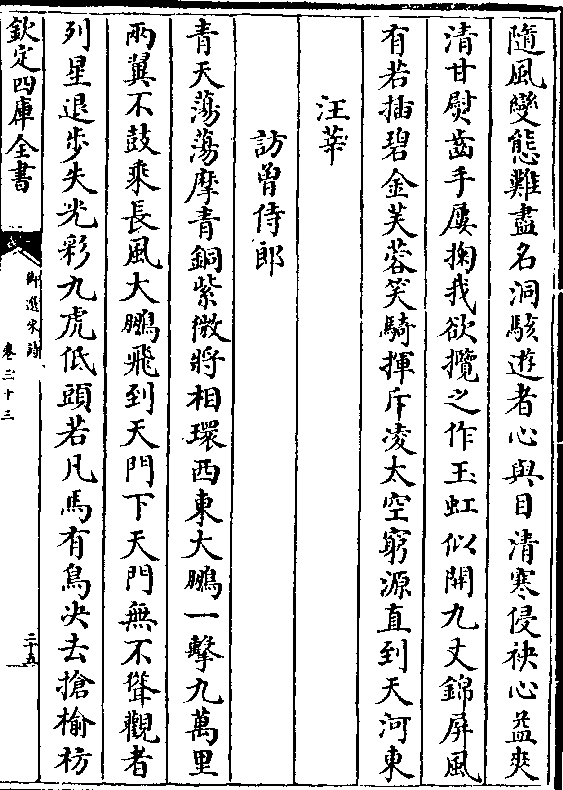 隨風變態難盡名洞駭遊者心與目清寒侵袂心益爽
清甘熨齒手屢掬我欲攬之作玉虹似開九丈錦屏風
有若揷碧金芙蓉笑騎揮斥凌太空窮源直到天河東
汪莘
訪曾侍郎
青天蕩蕩摩青銅紫微將相環西東大鵬一擊九萬里
兩翼不鼓乘長風大鵬飛到天門下天門無不聳觀者
列星退步失光彩九虎低頭若凡馬有鳥决去搶榆枋
欽定四庫全書
御選宋詩
卷三十三
三十五